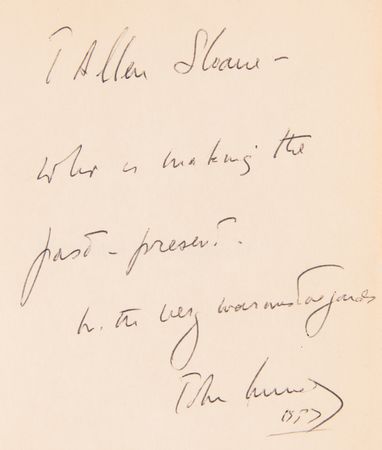 T Allen Sloane -
who is making the
past - present.
With very warmest regards
John
1957